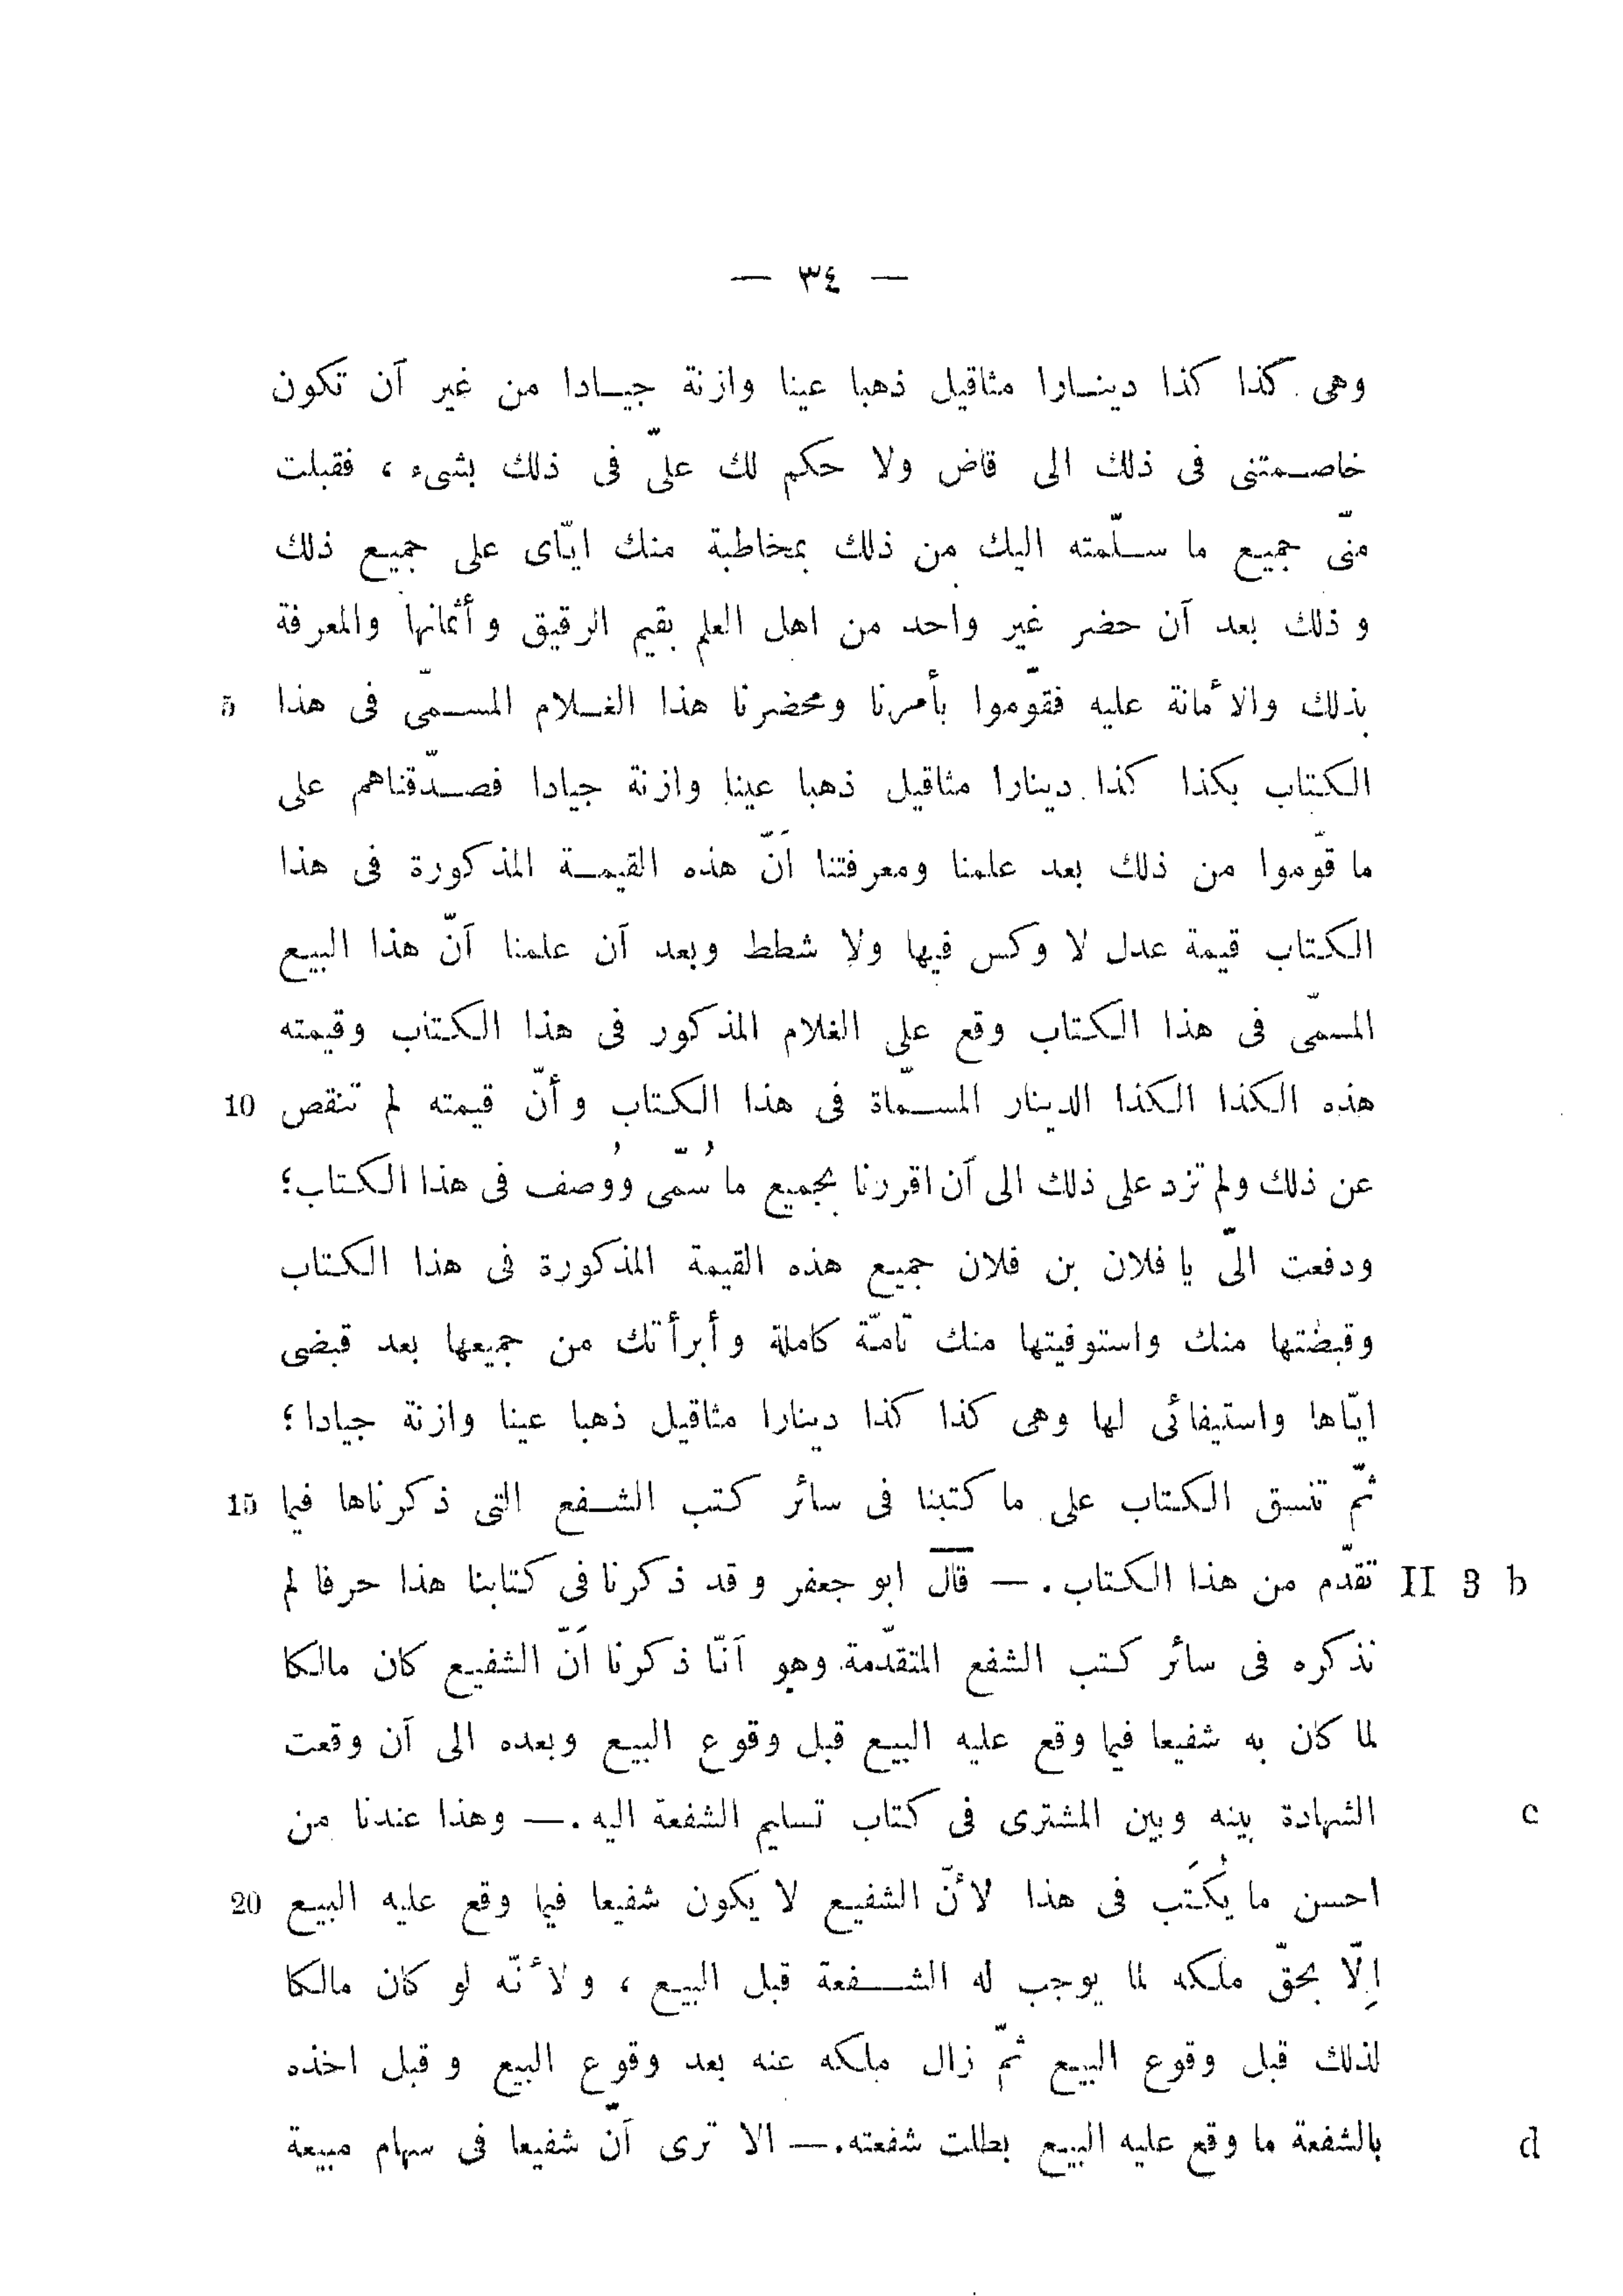 — ٣٤ —
وهى كذا كذا دينارا مثاقيل ذهبا عينا وازنة جيادا من غير أن تكون
خاصمتنى فى ذلك الى قاض ولا حكم لك علىّ فى ذلك بشىء ، فقبلت
منّى جميع ما سلّمته اليك من ذلك بمخاطبة منك ايّاى على جميع ذلك
وذلك بعد أن حضر غير واحد من اهل العلم بقيم الرقيق وأثمانها والمعرفة
بذلك والأمانة عليه فقوّموا بأمرنا ومحضرنا هذا الغلام المسمّى فى هذا 5
الكتاب بكذا كذا دينارا مثاقيل ذهبا عينا وازنة جيادا فصدّقناهم على
ما قوّموا من ذلك بعد علمنا ومعرفتنا أنّ هذه القيمة المذكورة فى هذا
الكتاب قيمة عدل لا وكس فيها ولا شطط وبعد أن علمنا أنّ هذا البيع
المسمّى فى هذا الكتاب وقع على الغلام المذكور فى هذا الكتاب وقيمته
هذه الكذا الكذا الدينار المسمّاة فى هذا الكتاب وأنّ قيمته لم تنقص 10
عن ذلك ولم تزد على ذلك الى أن اقررنا بجميع ما سُمّى ووُصف فى هذا الكتاب؛
ودفعت الىّ يا فلان بن فلان جميع هذه القيمة المذكورة فى هذا الكتاب
وقبضتها منك واستوفيتها منك تامّة كاملة وأبرأتك من جميعها بعد قبضى
ايّاها واستيفائى لها وهى كذا كذا دينارا مثاقيل ذهبا عينا وازنة جيادا ؛
ثمّ تنسق الكتاب على ما كتبنا فى سائر كتب الشفع التى ذكرناها فيما 15
تقدّم من هذا الكتاب . — قال ابو جعفر وقد ذكرنا فى كتابنا هذا حرفا لم II 3 b
نذكره فى سائر كتب الشفع المتقدّمة وهو أنّا ذكرنا أنّ الشفيع كان مالكا
لما كان به شفيعا فيما وقع عليه البيع قبل وقوع البيع وبعده الى أن وقعت
الشهادة بينه وبين المشترى فى كتاب تسليم الشفعة اليه . — وهذا عندنا من c
احسن ما يُكتَب فى هذا لأنّ الشفيع لا يكون شفيعا فيما وقع عليه البيع 20
إلّا بحقّ ملكه لما يوجب له الشفعة قبل البيع ، ولأنّه لو كان مالكا
لذلك قبل وقوع البيع ثمّ زال ملكه عنه بعد وقوع البيع وقبل اخذه
بالشفعة ما وقع عليه البيع بطلت شفعته. — الا ترى أنّ شفيعا فى سهام مبيعة d